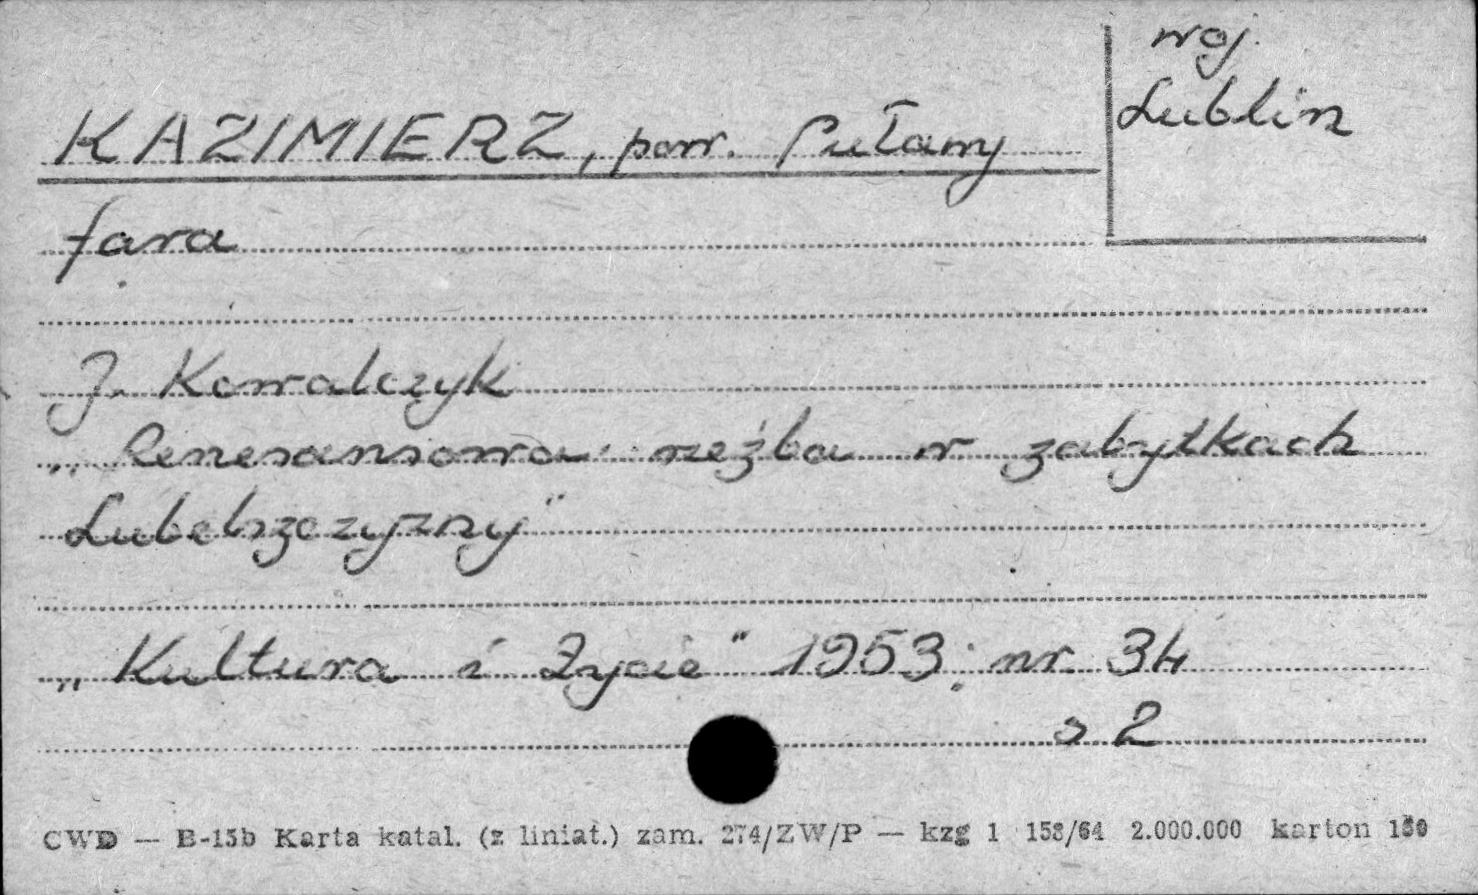 woj.
Lublin
KAZIMIERZ, pow. Puławy
fara
J. Kowalczyk
„Renesansowa rzeźba w zabytkach
Lubelszczyzny"
„Kultura i Życie" 1953; nr 34
s 2
CWD — B-15b Karta katal. (z liniat.) zam. 274/ZW/P — kzg 1 158/64 2.000.000 karton